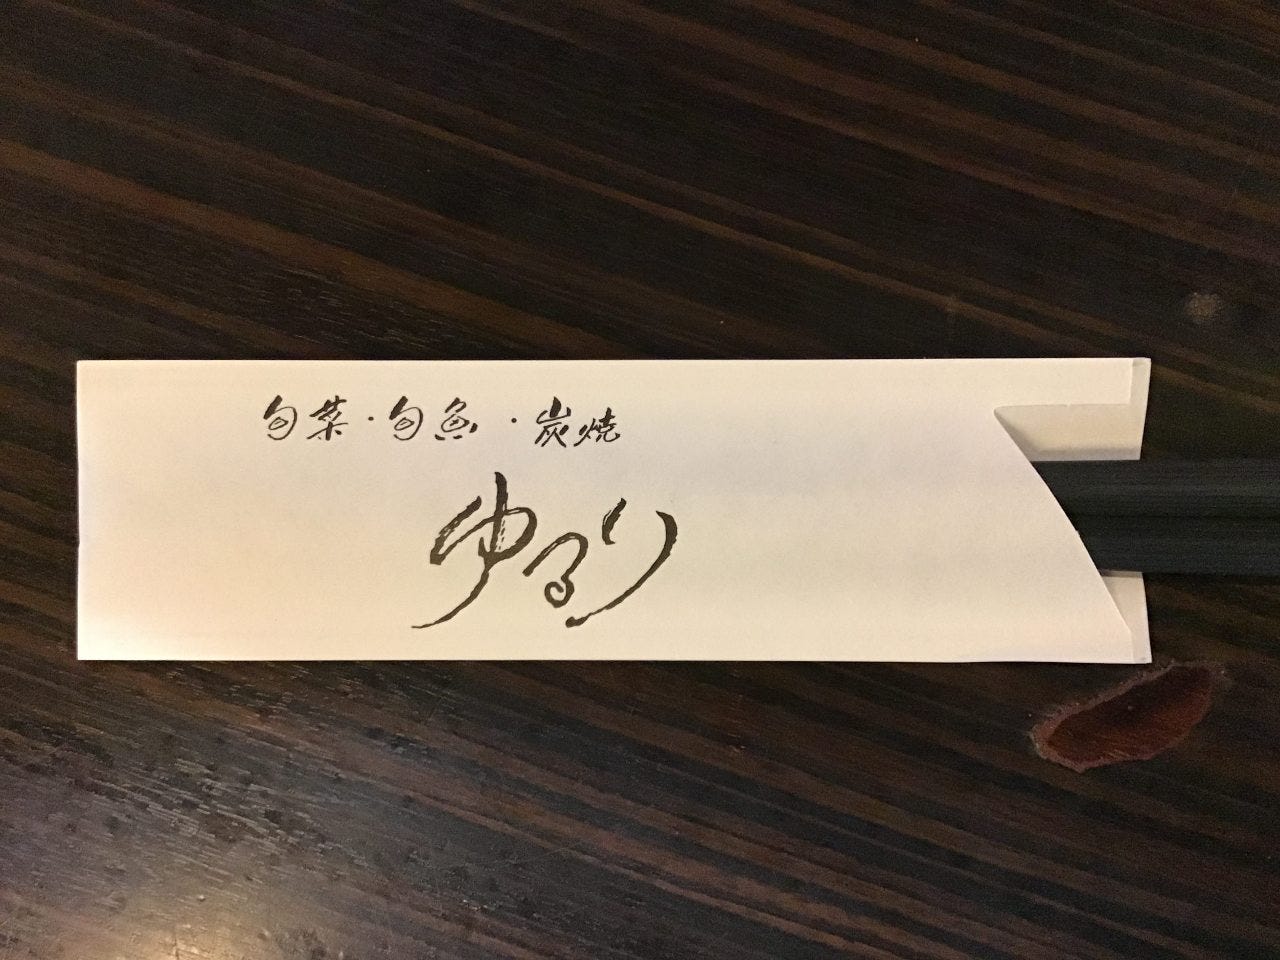 旬菜・旬魚・炭焼
ゆるり